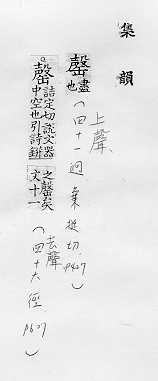 集韻
上聲
罄盡也(四十一迥 棄挺切. p427)
去聲
○罄詰定切說文器中空也引詩缾之罄矣文十一(四十六徑. p607)